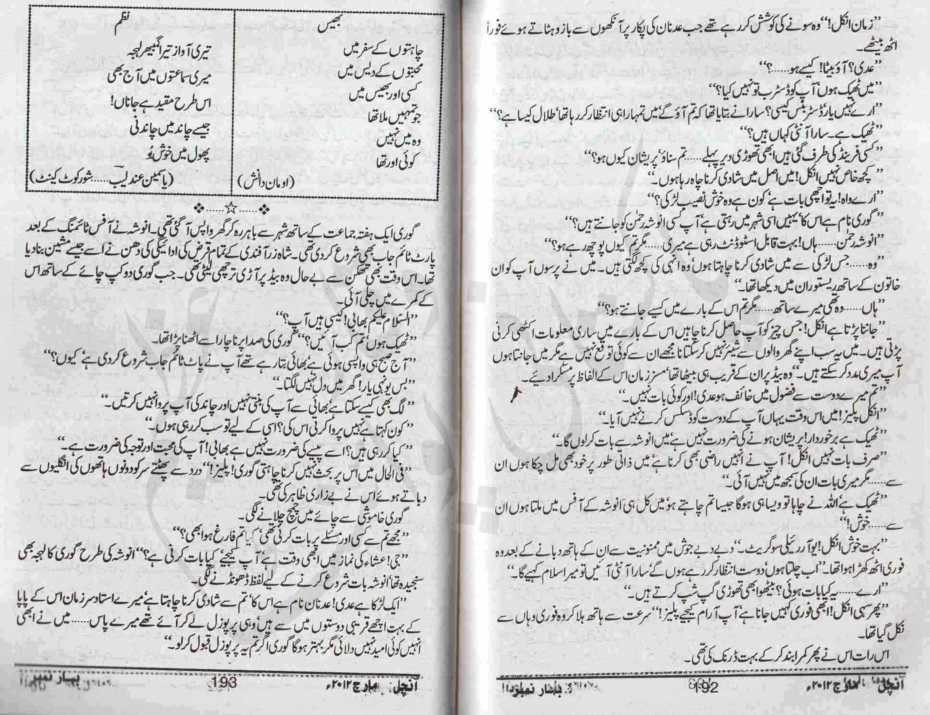 ”زمان انکل!“ وہ سونے کی کوشش کر رہے تھے جب عدنان کی پکار پر آنکھوں سے بازو ہٹاتے ہوئے فوراً
اٹھ بیٹھے۔
”عدی؟ آؤ بیٹا! کیسے ہو......؟“
”میں ٹھیک ہوں آپ کو ڈسٹرب تو نہیں کیا؟“
”ارے نہیں یار ڈسٹربنس کیسی؟ سارا نے بتایا تھا کہ تم آؤ گے‘ میں تمہارا ہی انتظار کر رہا تھا‘ طلال کیسا ہے؟“
”ٹھیک ہے۔ سارا آنٹی کہاں ہیں؟“
”کسی فرینڈ کی طرف گئی ہیں ابھی تھوڑی دیر پہلے...... تم سناؤ‘ پریشان کیوں ہو؟“
”کچھ خاص نہیں انکل! میں اصل میں شادی کرنا چاہ رہا ہوں۔“
”ارے واہ‘ یہ تو اچھی بات ہے کون ہے وہ خوش نصیب لڑکی؟“
”گوری نام ہے اس کا‘ یہیں اسی شہر میں رہتی ہے آپ کسی انوشہ رحمٰن کو جانتے ہیں؟“
”انوشہ رحمٰن...... ہاں! بہت قابل اسٹوڈنٹ رہی ہے میری...... مگر تم کیوں پوچھ رہے ہو؟“
”وہ...... جس لڑکی سے میں شادی کرنا چاہتا ہوں‘ وہ انہی کی کچھ لگتی ہیں۔ میں نے پرسوں آپ کو ان
خاتون کے ساتھ ریسٹوران میں دیکھا تھا۔“
”ہاں...... وہ تھی میرے ساتھ...... مگر تم اس کے بارے میں کیسے جانتے ہو؟“
”جاننا پڑتا ہے انکل! جس چیز کو آپ حاصل کرنا چاہیں اس کے بارے میں ساری معلومات اکٹھی کرنی
پڑتی ہیں۔ میں یہ سب اپنے گھر والوں سے شیئر نہیں کر سکتا نا مجھے ان سے کوئی توقع نہیں ہے مگر میں جانتا ہوں
آپ میری مدد کر سکتے ہیں۔“ وہ بیڈ پر ان کے قریب ہی بیٹھا تھا‘ مسٹر زمان اس کے الفاظ پر مسکرا دیئے۔
”تم میرے دوست سے فضول میں خائف ہو عدی! اور کوئی بات نہیں۔“
”انکل پلیز! میں اس وقت یہاں آپ کے دوست کو ڈسکس کرنے نہیں آیا۔“
”ٹھیک ہے برخوردار! پریشان ہونے کی ضرورت نہیں ہے میں انوشہ سے بات کرلوں گا۔“
”صرف بات نہیں انکل! آپ نے انہیں راضی بھی کرنا ہے‘ میں ذاتی طور پر خود بھی مل چکا ہوں ان
سے...... مگر میری بات ان کی سمجھ میں نہیں آئی۔“
”ٹھیک ہے‘ اللہ نے چاہا تو ویسا ہی ہوگا جیسا تم چاہتے ہو‘ میں کل ہی انوشہ کے آفس میں ملتا ہوں ان
سے...... خوش!“
”بہت خوش انکل! یو آر ریئلی سو گریٹ۔“ دبے دبے جوش میں ممنونیت سے ان کے ہاتھ دبانے کے بعد وہ
فوری اٹھ کھڑا ہوا تھا۔ ”اب چلتا ہوں‘ دوست انتظار کر رہے ہوں گے‘ سارا آنٹی آئیں تو میرا سلام کہیے گا۔“
”ارے...... یہ کیا بات ہوئی؟ بیٹھو ابھی تھوڑی گپ شپ کرتے ہیں۔“
”پھر سہی انکل! ابھی فوری کہیں جانا ہے‘ آپ آرام کیجیے پلیز!“ سرعت سے ہاتھ ہلا کر وہ فوری وہاں سے
نکل گیا تھا۔
اس رات اس نے پھر کمرا بند کر کے بہت ڈرنک کی تھی۔
آنچل مارچ ۲۰۱۲ء 192 بہار نمبر
بھیس
چاہتوں کے سفر میں
محبتوں کے دیس میں
کسی اور بھیس میں
جو تمہیں ملا تھا
وہ میں نہیں
کوئی اور تھا
(اومان دانش)
نظم
تیری آواز تیرا گمبھیر لہجہ
میری سماعتوں میں آج بھی
اس طرح مقید ہے جاناں!
جیسے چاند میں چاندنی
پھول میں خوش بُو
(یاسمین عندلیب...... شورکوٹ کینٹ)
❖......☆......❖
گوری ایک ہفتہ جماعت کے ساتھ شہر سے باہر رہ کر گھر واپس آ گئی تھی۔ انوشہ نے آفس ٹائمنگ کے بعد
پارٹ ٹائم جاب بھی شروع کر دی تھی۔ شاہ زر آفندی کے تمام قرض کی ادائیگی کی دھن نے اسے جیسے مشین بنا دیا
تھا۔ اس وقت بھی تھکن سے بے حال وہ بیڈ پر آڑی ترچھی لیٹی تھی۔ جب گوری دو کپ چائے کے ساتھ اس
کے کمرے میں چلی آئی۔
”السلام علیکم بھابی! کیسی ہیں آپ؟“
”ٹھیک ہوں‘ تم کب آئیں؟“ گوری کی صدا پر ناچار اسے اٹھنا پڑا تھا۔
”آج صبح ہی واپسی ہوئی ہے‘ بھائی بتا رہے تھے آپ نے پارٹ ٹائم جاب شروع کر دی ہے‘ کیوں؟“
”بس یونہی یار! گھر میں دل نہیں لگتا۔“
”لگ بھی کیسے سکتا ہے بھائی سے آپ کی بنتی نہیں اور چاند کی آپ پروا نہیں کرتیں۔“
”کون کہتا ہے نہیں پروا کرتی اس کی؟ اسی کے لیے تو سب کر رہی ہوں۔“
”کیا کر رہی ہیں؟ اسے پیسے کی ضرورت نہیں ہے بھابی! آپ کی محبت اور توجہ کی ضرورت ہے۔“
”فی الحال میں اس پر بحث نہیں کرنا چاہتی گوری! پلیز!“ درد سے پھٹتے سر کو دونوں ہاتھوں کی انگلیوں سے
دباتے ہوئے اس نے بے زاری ظاہر کی تھی۔
گوری خاموشی سے چائے میں چمچ چلانے لگی۔
”مجھے تم سے کسی اور مسئلے پر بات کرنی تھی‘ کیا تم فارغ ہو ابھی؟“
”جی! عشاء کی نماز میں ابھی وقت ہے‘ آپ کہیے‘ کیا بات کرنی ہے؟“ انوشہ کی طرح گوری کا لہجہ بھی
سنجیدہ تھا‘ انوشہ بات شروع کرنے کے لیے لفظ ڈھونڈنے لگی۔
”ایک لڑکا ہے عدی! عدنان نام ہے اس کا‘ تم سے شادی کرنا چاہتا ہے‘ میرے استاد سر زمان اس کے پاپا
کے بہت اچھے قریبی دوستوں میں سے ہیں‘ وہی پرپوزل لے کر آئے تھے میرے پاس...... میں نے ابھی
انہیں کوئی امید نہیں دلائی مگر بہتر ہوگا گوری اگر تم یہ پرپوزل قبول کرلو۔“
آنچل مارچ ۲۰۱۲ء 193 بہار نمبر